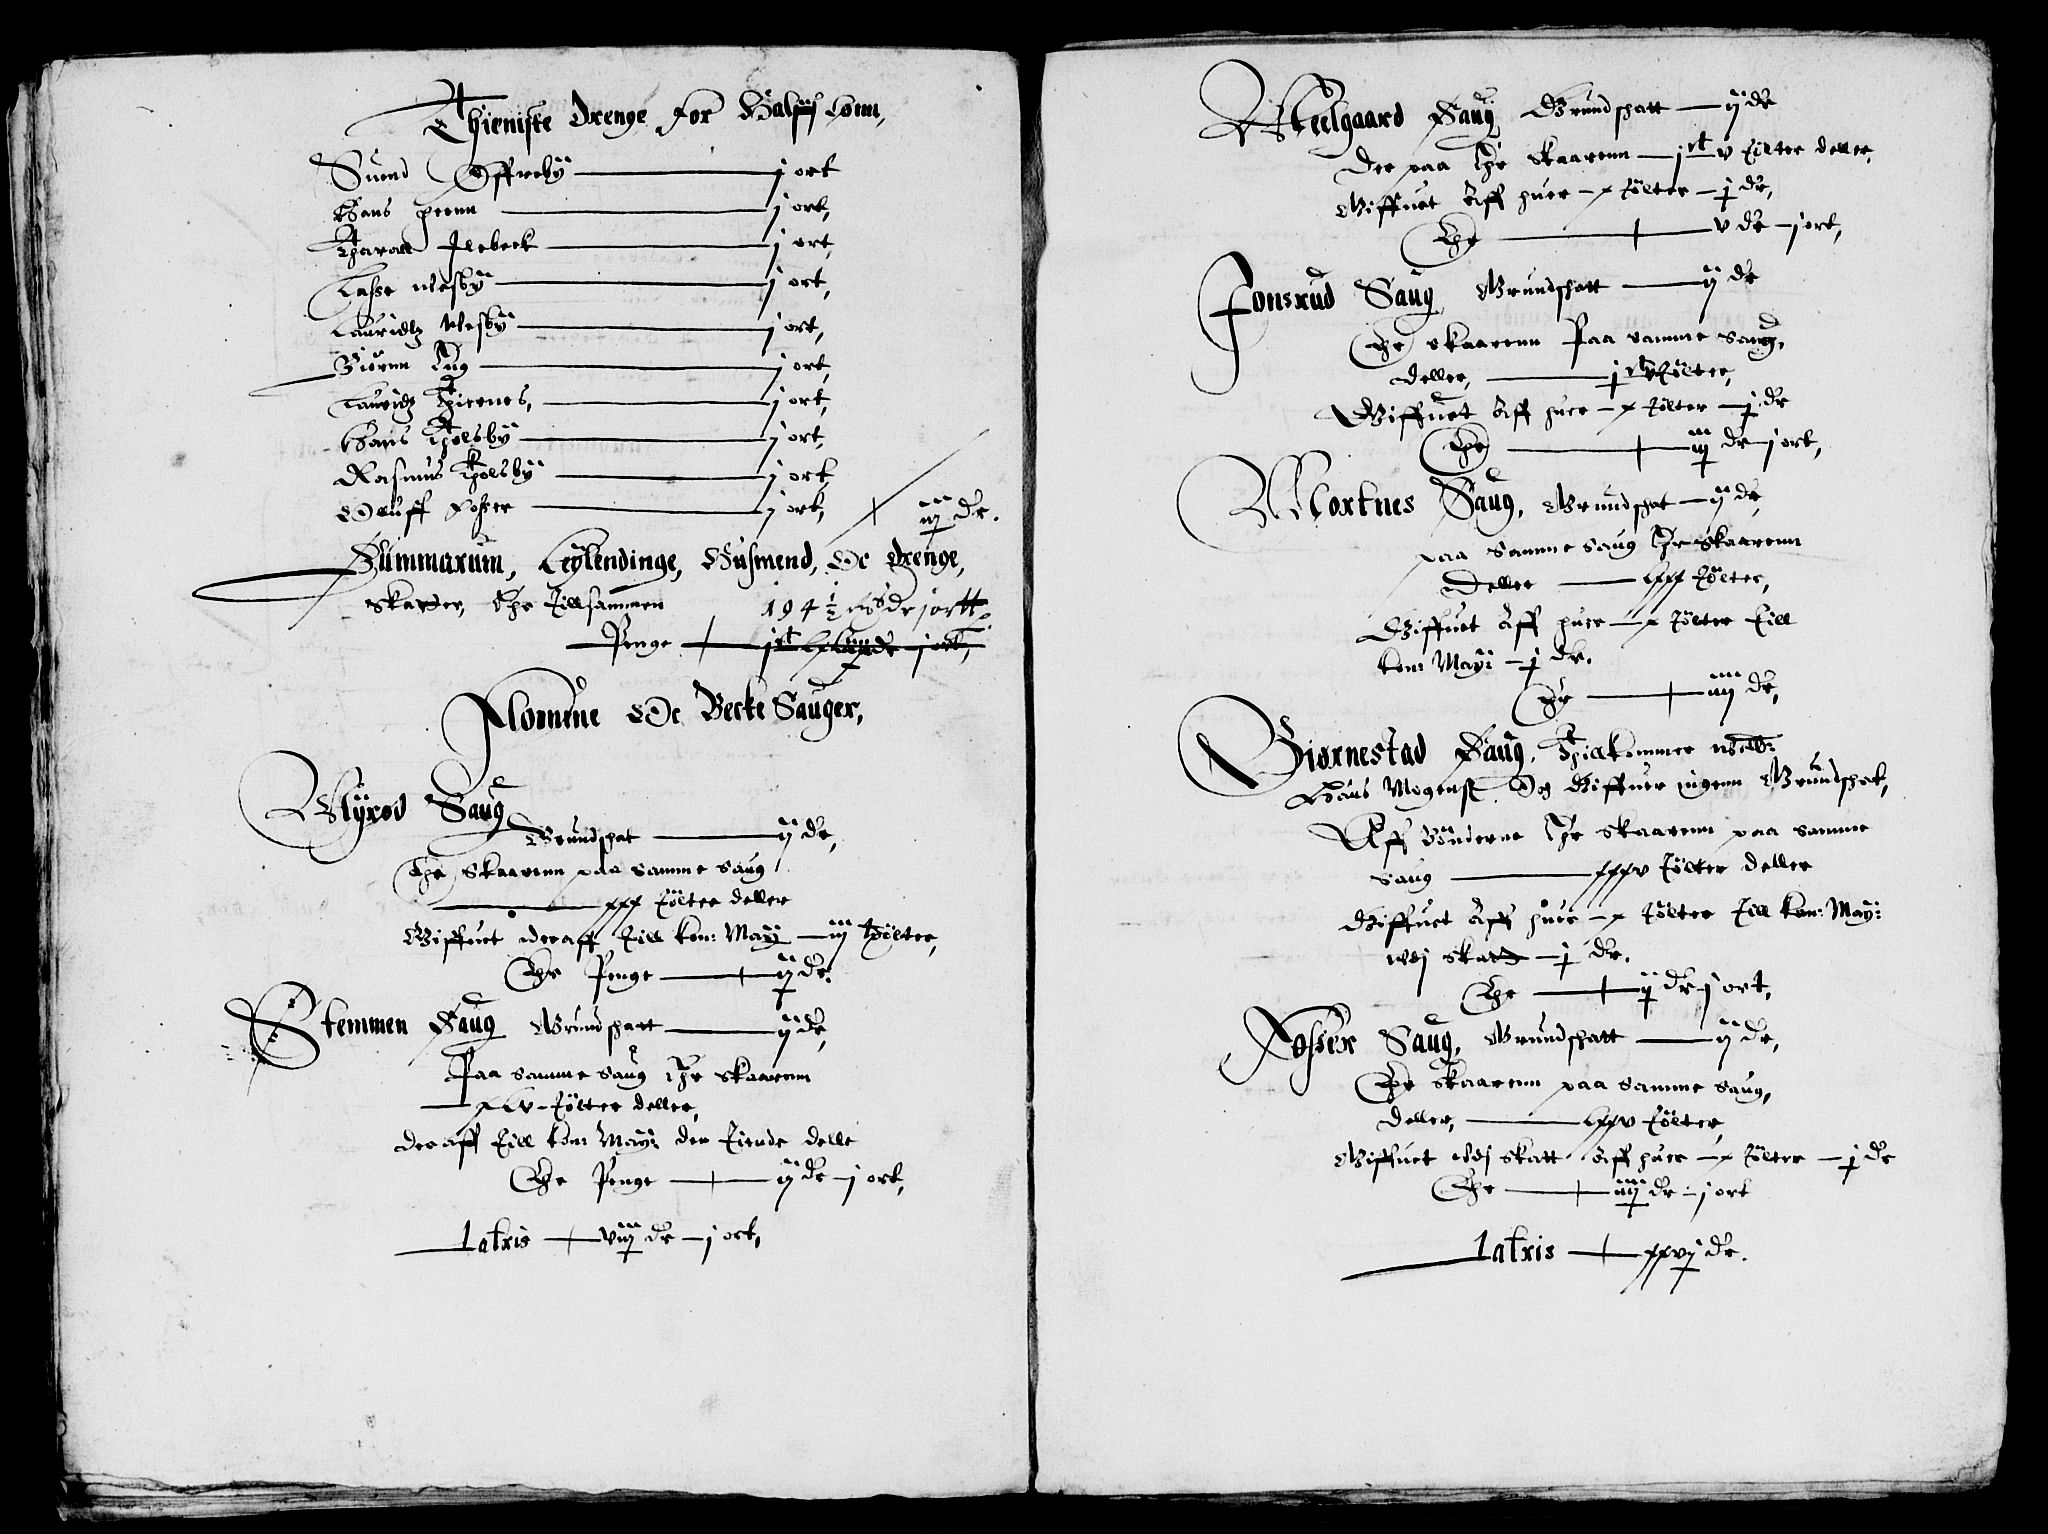 Thieniste Drenge for Halff Lønn,
Suend Offreby — j ort
Hans — j ort,
Harall Ilebeck — j ort
Lasse Nesby — j ort,
Lauridtz Nesby — j ort,
Biørnn — j ort,
Lauridtz — j ort,
Hans Holsby — j ort,
Rasmus Holsby — j ort
Oluff Fosser — j ort, + iij dr.
Summarum, Leylendinge, Husmend, Oc Drenge,
Skatter, Er Tillsammen 194½ dr j ortt
Penge + j ort,
Flomme Oc Becke Sauger,
Myrod Saug
Grundskat — ij dr,
Er Skaarenn paa samme Saug
— xxx Tølter deller
Giffuet deraff Till kon: May — iij Tølter,
Er Penge + ij dr.
Stemmen Saug Grundskatt — ij dr,
Paa samme Saug Er Skaarenn
— xlv Tølter deller,
deraff Till kon: May: den Tiende delle
Er Penge + ij dr j ort,
Latris + viij dr j ort,
Melgaard Saug Grundskatt — ij dr
Der paa Er skaarenn — j v Tølter deller,
Giffuet Aff huer x Tølter — j dr,
Er + v dr j ort,
Fonsrud Saug Grundskatt — ij dr
Er skaarenn Paa samme Saug,
deller, — j Tølter,
Giffuet Aff huer x Tølter — j dr
Er + iij dr j ort,
Mortnes Saug, Grundskat — ij dr,
paa samme saug Er Skaarenn
Deller — lxx Tølter,
Giffuet Aff huer x Tølter Till
kon: May: — j dr.
Er + iiij dr,
Biørnestad Saug, Thillkommer
Hans Mogens. Og Giffuer ingenn Grundskat,
Aff Bønderne Er Skaarenn paa samme
Saug — xxxv Tølter deller
Giffuet Aff huer x Tølter Till kon: May:
skatt — j dr.
Er + ij dr j ort,
Fosser Saug, Grundskatt — ij dr,
Er Skaarenn paa samme Saug,
deller, — lxxv Tølter,
Giffuet skatt Aff huer x Tølter — j dr
Er + iiij dr j ort
Latris + xxvj dr.